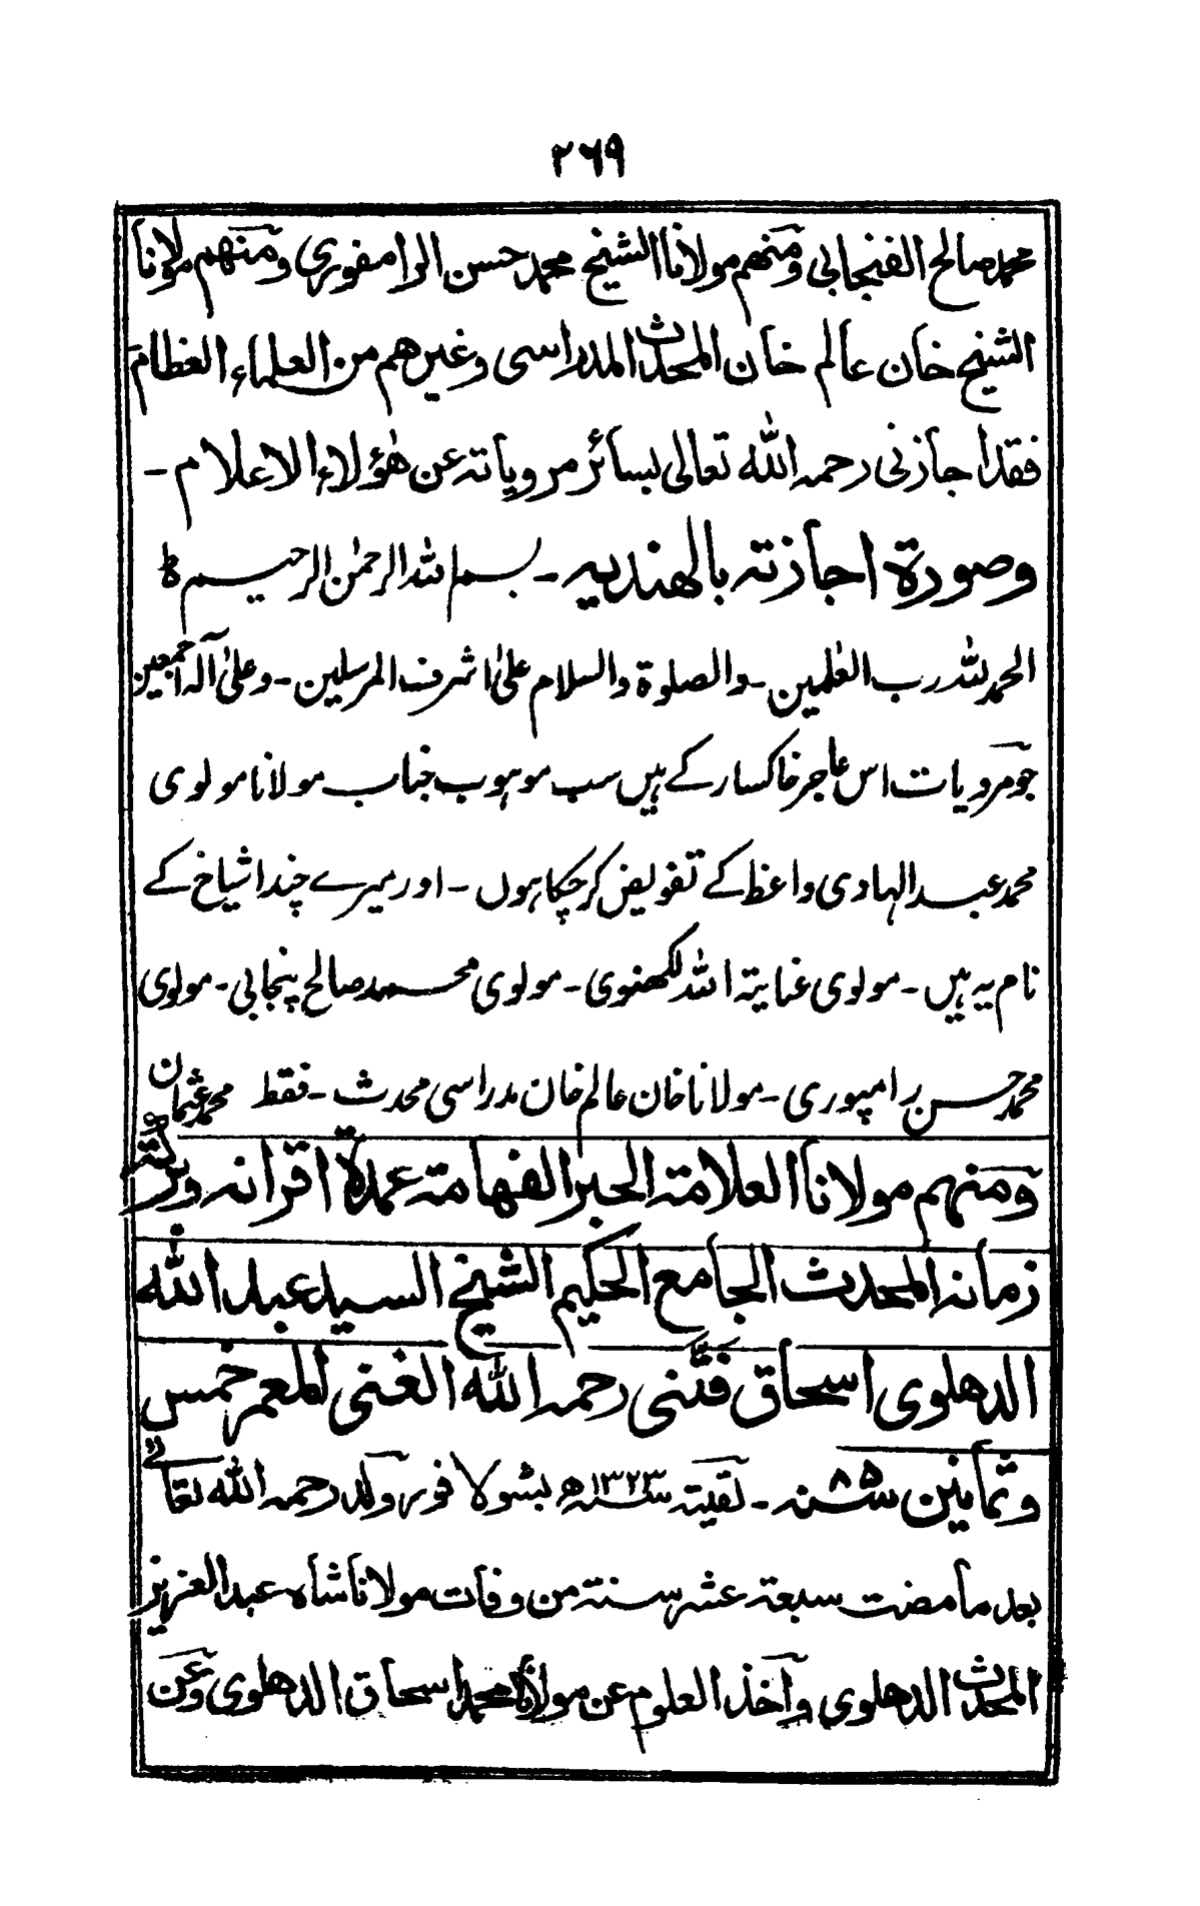 ۲۶۹
محمد صالح الفنجابی ومنهم مولانا الشیخ محمد حسن الرامفوری ومنهم مولانا
الشیخ خان عالم خان المحدث المدراسی وغیرهم من العلماء العظام
فقد اجازنی رحمه الله تعالی بسائر مرویاته عن هٰؤلاء الاعلام -
وصورة اجازته بالهندیه - بسم الله الرحمٰن الرحیم ط
الحمد لله رب العٰلمین - والصلوة والسلام علیٰ اشرف المرسلین - وعلیٰ آله اجمعین
جو مرویات اس عاجز خاکسار کے ہیں سب موہوب جناب مولانا مولوی
محمد عبد الہادی واعظ کے تفویض کر چکا ہوں - اور میرے چند اشیاخ کے
نام یہ ہیں - مولوی عنایة الله لکھنوی - مولوی محمد صالح پنجابی - مولوی
محمد حسن رامپوری - مولانا خان عالم خان مدراسی محدث - فقط محمد عثمان
ومنهم مولانا العلامة الحبر الفهامة عمدة اقرانه وبرکة
زمانه المحدث الجامع الحکیم الشیخ السید عبد الله
الدهلوی اسحاق فتنی رحمه الله الغنی المعمر خمس
وثمانین ۸۵ سنه - لقیته سنه ۱۳۲۳ھ بشولافور وولد رحمه الله تعالےٰ
بعد ما مضت سبعة عشر سنة من وفات مولانا شاه عبد العزیز
المحدث الدهلوی وأخذ العلوم عن مولانا محمد اسحاق الدهلوی وعن